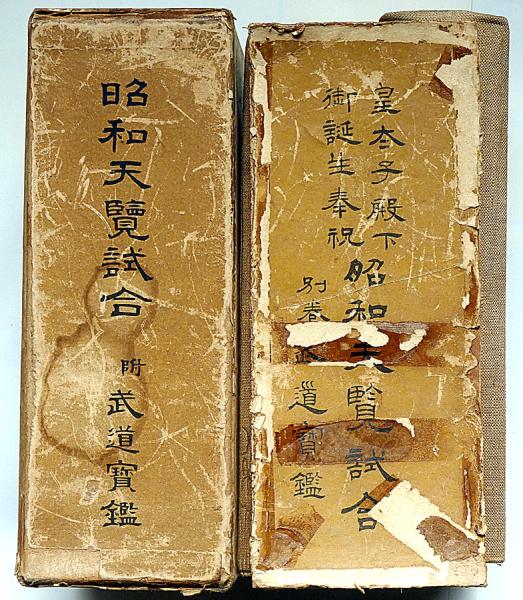 昭和天覽試合
附
武道寶鑑
皇太子殿下
御誕生奉祝
昭和天覽試合
別卷
武道寶鑑